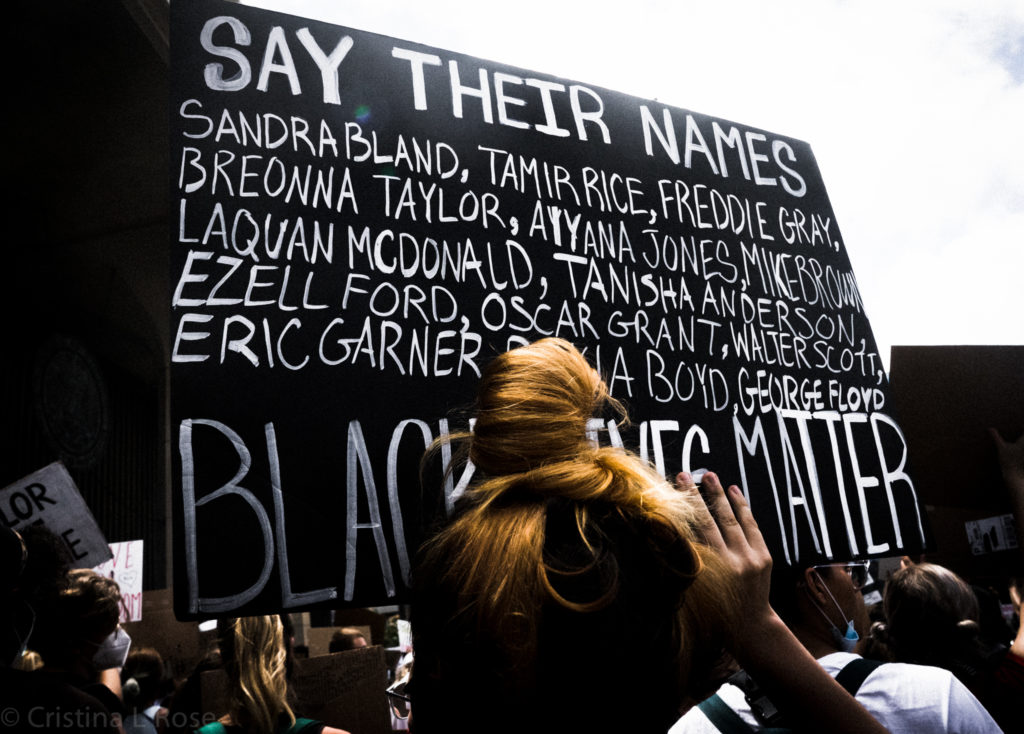 SAY THEIR NAMES
SANDRA BLAND, TAMIR RICE, FREDDIE GRAY,
BREONNA TAYLOR, AIYANA JONES, MIKE BROWN
LAQUAN MCDONALD, TANISHA ANDERSON,
EZELL FORD, OSCAR GRANT, WALTER SCOTT,
ERIC GARNER BOYD, GEORGE FLOYD
BLACK MATTER
© Cristina L Rose